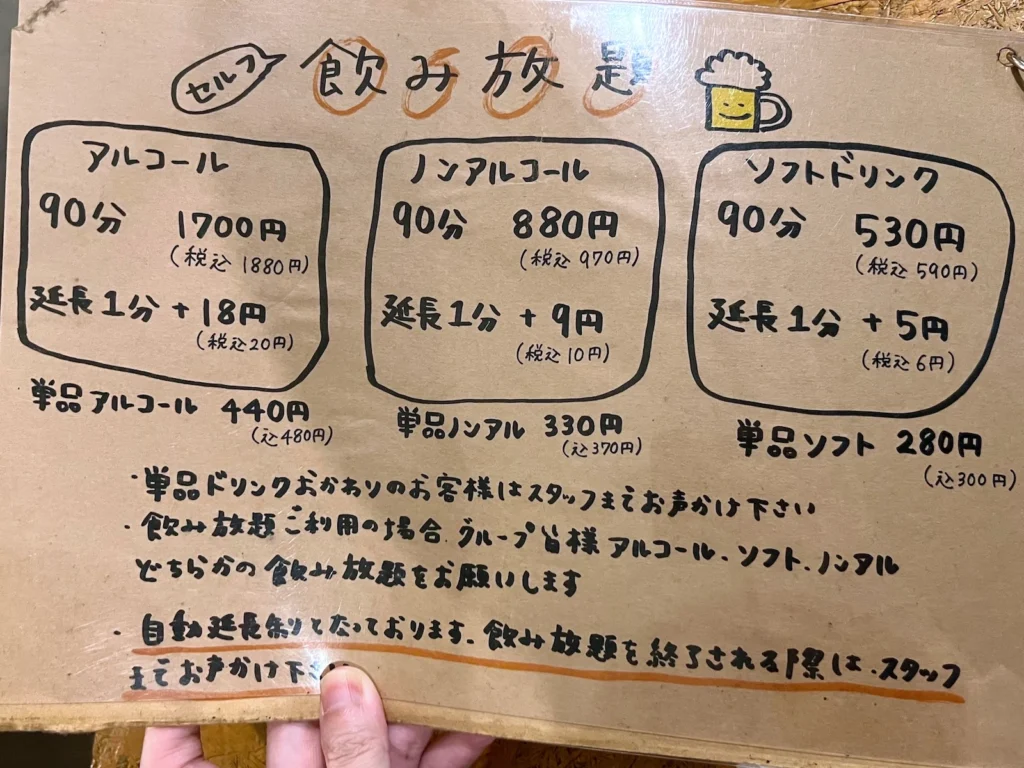 セルフ
飲み放題
アルコール
90分 1700円
(税込 1880円)
延長1分 +18円
(税込20円)
単品アルコール 440円
(込480円)
ノンアルコール
90分 880円
(税込 970円)
延長1分 +9円
(税込10円)
単品ノンアル 330円
(込370円)
ソフトドリンク
90分 530円
(税込 590円)
延長1分 +5円
(税込6円)
単品ソフト 280円
(込300円)
・単品ドリンクおかわりのお客様はスタッフまでお声かけ下さい
・飲み放題ご利用の場合、グループ皆様アルコール、ソフト、ノンアル
どちらかの飲み放題をお願いします
・自動延長制となっております。飲み放題を終了される際は、スタッフ
までお声かけ下